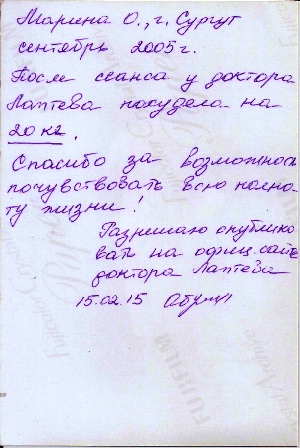 Марина О., г. Сургут
сентябрь 2005 г.
После сеанса у доктора
Лаптева похудела на
20 кг.
Спасибо за возможнос
почувствовать всю полно-
ту жизни!
Разрешаю опублико
вать на офиц. сайте
доктора Лаптева
15.02.15
FUJIFILM